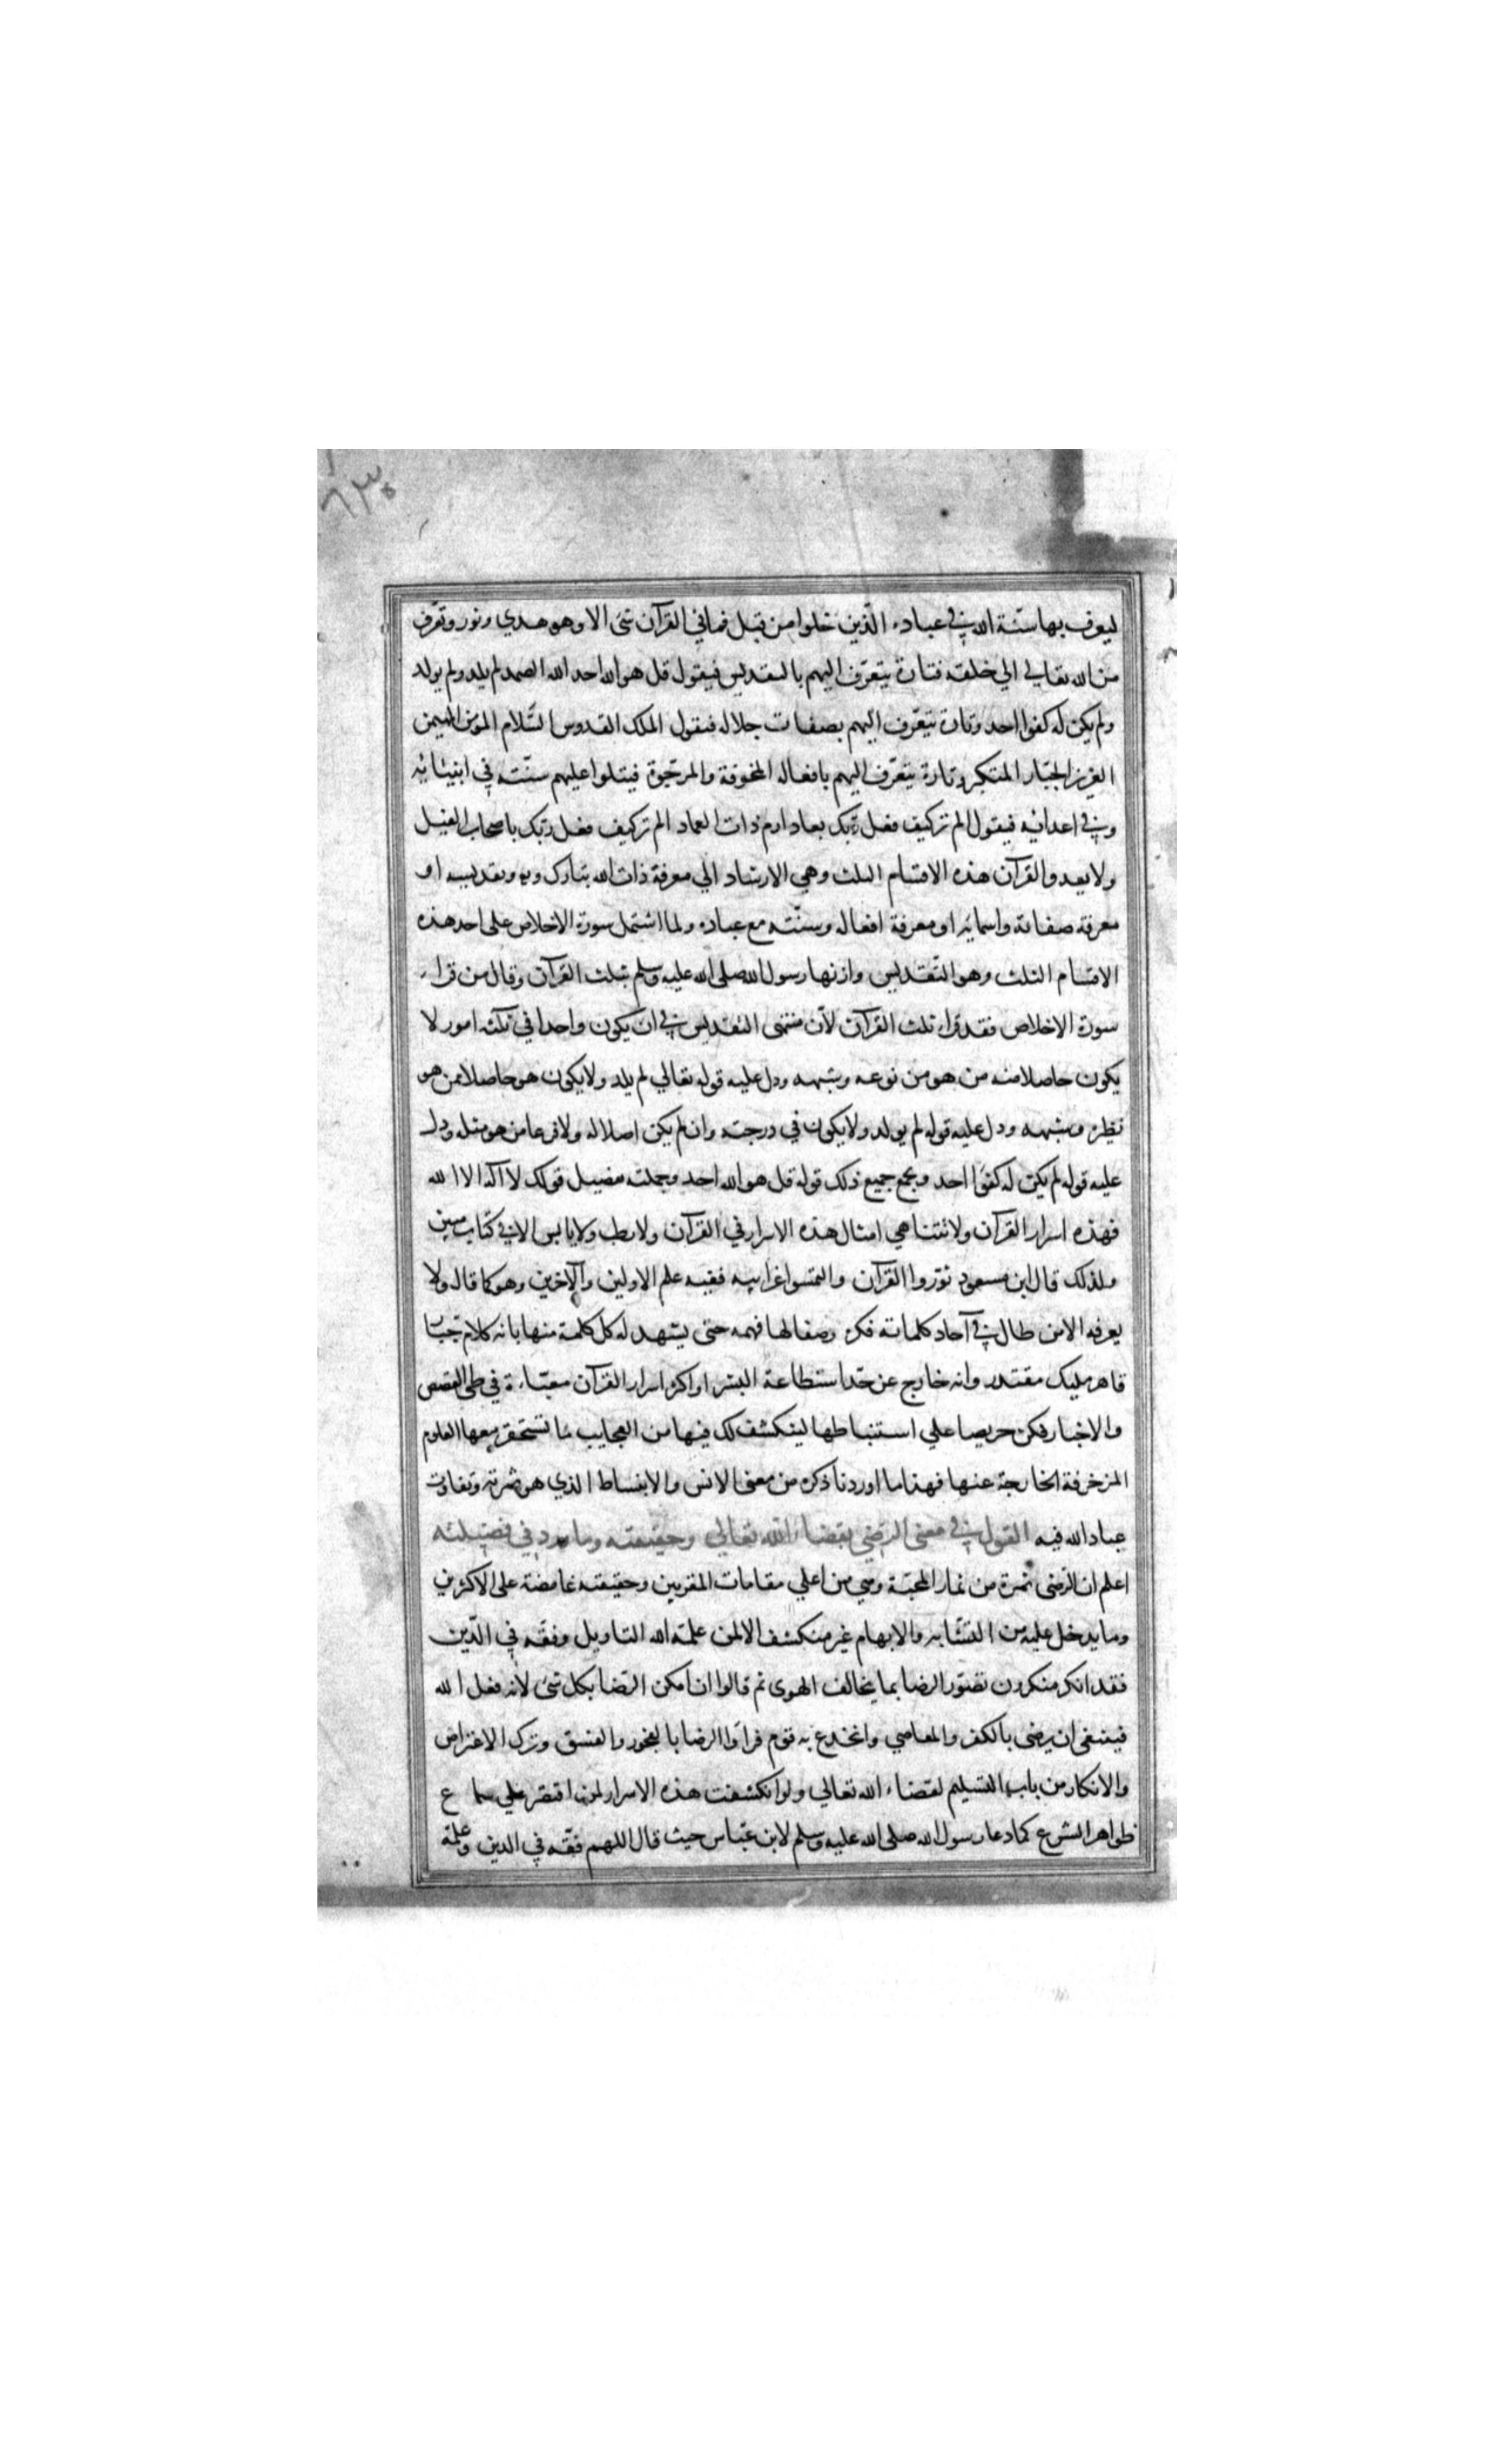 ٦٣٥
ليعرف بها سنّة الله في عباده الّذين خلوا من قبل فما في القرآن شئ الا وهو هدي ونور وتعرّف
من الله تعالي الي خلقه فتارة يتعرّف اليهم بالتقديس فيقول قل هو الله احد الله الصمد لم يلد ولم يولد
ولم يكن له كفوا احد وتارة يتعرّف اليهم بصفات جلاله فيقول الملك القدوس السّلام المؤمن المهيمن
العزيز الجبّار المتكبر وتارة يتعرّف اليهم بافعاله المخوفة والمرجّوة فيتلوا عليهم سنّته في انبيائه
وفي اعدائه فيقول الم تر كيف فعل ربّك بعاد ارم ذات العماد الم تر كيف فعل ربّك باصحاب الفيل
ولا يعدوا القرآن هذه الاقسام الثلث وهي الارشاد الي معرفة ذات الله تبارك وتقديسه او
معرفة صفاته واسمائه او معرفة افعاله وسنّته مع عباده ولما اشتمل سورة الاخلاص علي احد هذه
الاقسام الثلث وهو التّقديس وازنها رسول الله صلى الله عليه وسلم بثلث القرآن وقال من قراء
سورة الاخلاص فقد قراء ثلث القرآن لأن منتهى التقديس في ان يكون واحدا في ثلثه امور لا
يكون حاصلا منه من هو من نوعه وشبهه ودل عليه قوله تعالي لم يلد ولا يكون هو حاصلا ممن هو
نظيره وشبهه ودل عليه قوله لم يولد ولا يكون في درجته وان لم يكن اصلا له ولا فرعا من هو مثله ودل
عليه قوله لم يكن له كفوا احد ويجمع جميع ذلك قوله قل هو الله احد وجملته تفصيل قولك لا آله الا الله
فهذه اسرار القرآن ولا تتناهي امثال هذه الاسرار في القرآن ولا رطب ولا يابس الا في كتاب مبين
ولذلك قال ابن مسعود نوّروا القرآن والتمسوا غرايبه ففيه علم الاولين والآخرين وهو كما قال ولا
يعرفه الا من طال في آحاد كلماته فكره وصفا لها فهمه حتى يشهد له كل كلمة منها بانه كلام جبّار
قاهر مليك مقتدر وانه خارج عن حدّ استطاعة البشر واكثر اسرار القرآن معبّاءة في طي القصص
والاخبار فكن حريصا علي استنباطها لينكشف لك فيها من العجايب ما تستحقر معها العلوم
المزخرفة الخارجة عنها فهذا ما اوردنا ذكره من معنى الانس والانبساط الذي هو ثمرته وتفاوت
عباد الله فيه القول في معنى الرّضي بقضاء الله تعالي وحقيقته وما ورد في فضيلته
اعلم ان الرّضى ثمرة من ثمار المحبّة وهي من اعلي مقامات المقربين وحقيقته غامضة على الاكثرين
وما يدخل عليه من التشابه والابهام غير منكشف الا لمن علّمه الله التاويل وفقّهه في الدّين
فقد انكر منكرون تصوّر الرضا بما يخالف الهوى ثم قالوا ان امكن الرّضا بكل شئ لأنه فعل الله
فينبغي ان يرضى بالكفر والمعاصي وانخدع به قوم فرأوا الرضا بالفجور والفسق وترك الاعتراض
والانكار من باب التسليم لقضاء الله تعالي ولو انكشفت هذه الاسرار لمن اقتصر علي سماع
ظواهر الشرع كما دعا رسول الله صلى الله عليه وسلم لابن عبّاس حيث قال اللهم فقّهه في الدين وعلّمه